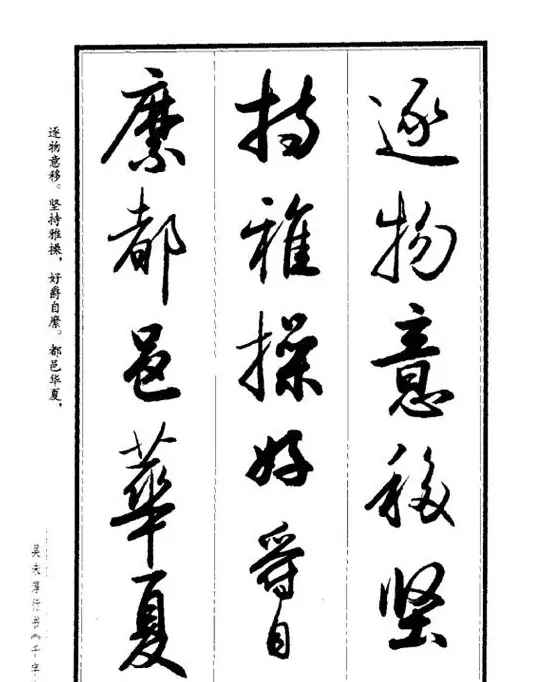 逐物意移坚
持雅操好爵自
縻都邑華夏
逐物意移。坚持雅操，好爵自縻。都邑华夏，
吴未淳行书《千字